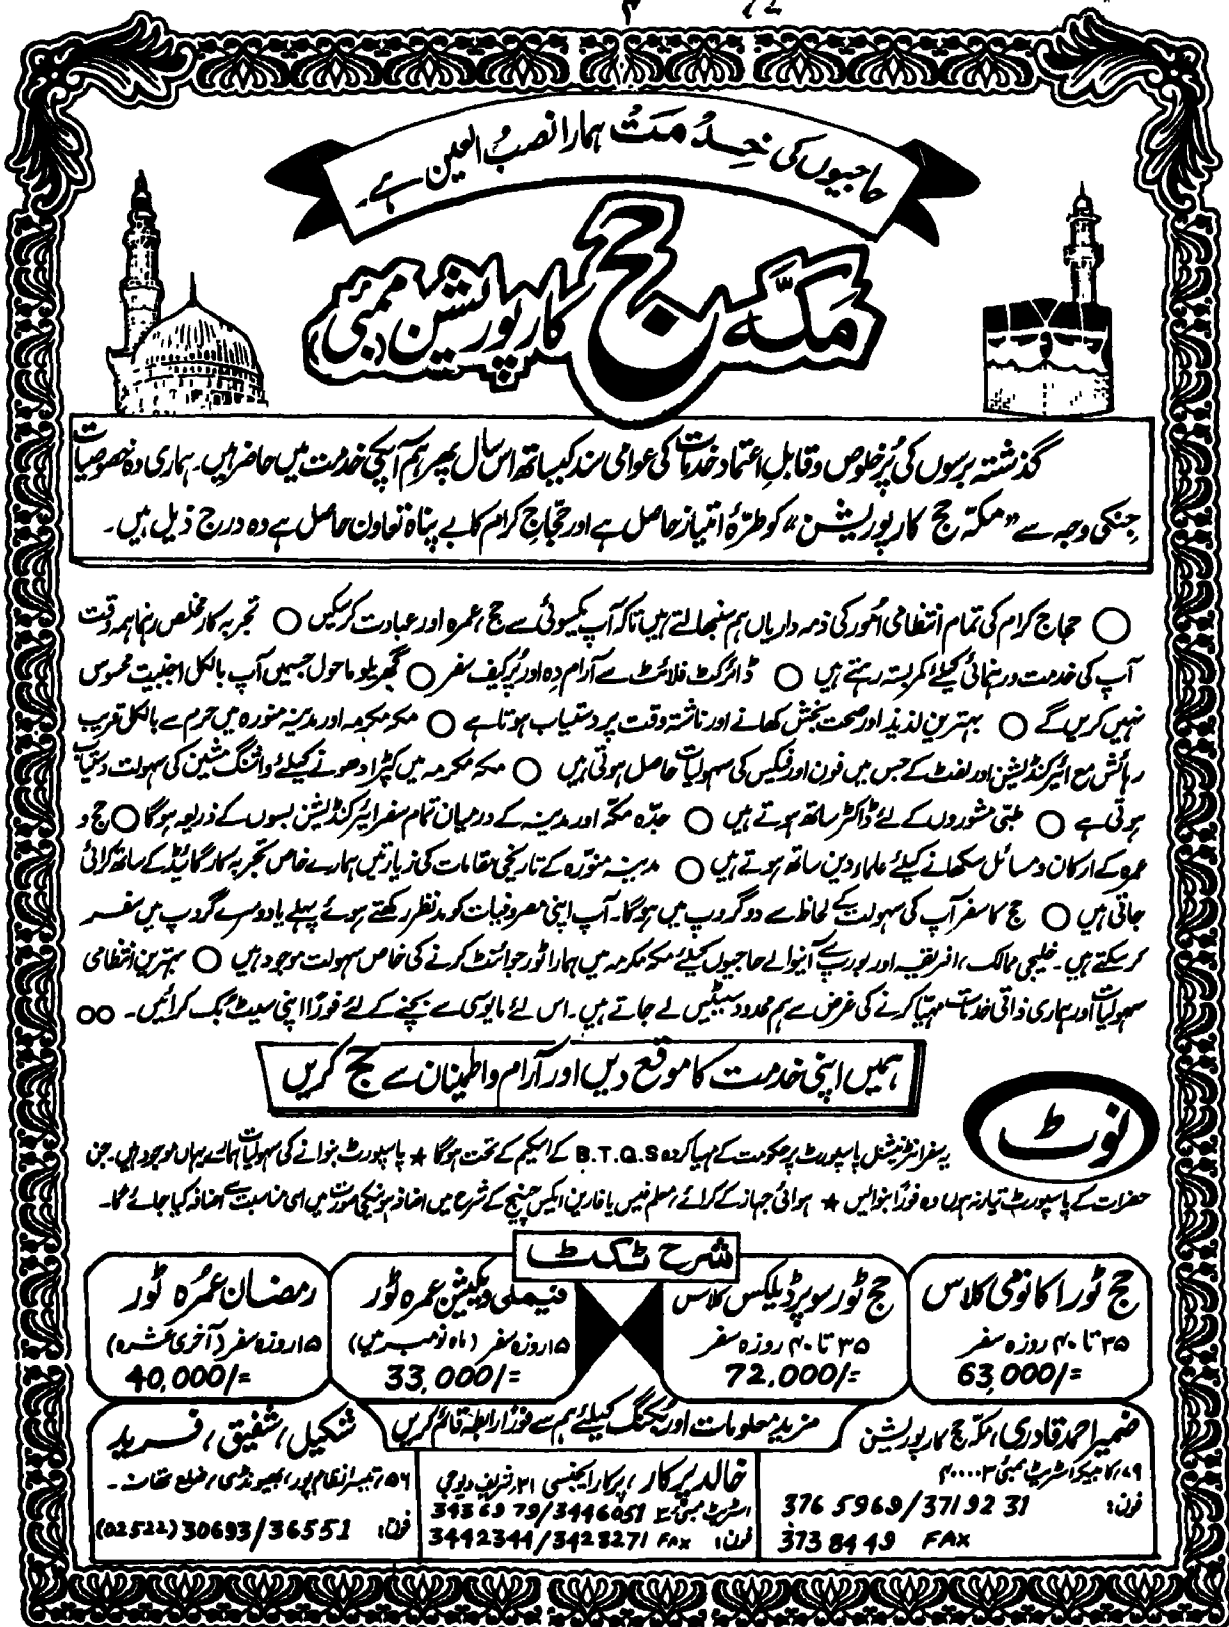 حاجیوں کی خدمت ہمارا نصب العین ہے۔
مکہ حج کارپوریشن (ممبئی)
گذشتہ برسوں کی پُرخلوص و قابلِ اعتماد خدمات کی عوامی سند کیساتھ اس سال پھر ہم آپکی خدمت میں حاضر ہیں۔ ہماری وہ خصوصیات
جنکی وجہ سے "مکہ حج کارپوریشن" کو طرّۂ امتیاز حاصل ہے اور حجّاج کرام کا بے پناہ تعاون حاصل ہے وہ درج ذیل ہیں۔
○ حجاج کرام کی تمام انتظامی امُور کی ذمہ داریاں ہم سنبھالتے ہیں تاکہ آپ یکسوئی سے حج، عمرہ اور عبادت کرسکیں ○ تجربہ کار مخلص رہنما ہمہ وقت
آپ کی خدمت و رہنمائی کیلئے کمربستہ رہتے ہیں ○ ڈائرکٹ فلائٹ سے آرام دہ اور پُرکیف سفر ○ گھریلو ماحول جسمیں آپ بالکل اجنبیت محسوس
نہیں کریں گے ○ بہترین لذیذ اور صحت بخش کھانے اور ناشتہ وقت پر دستیاب ہوتا ہے ○ مکہ مکرمہ اور مدینہ منورہ میں حرم سے بالکل قریب
رہائش مع ائیرکنڈیشن اور لفٹ کے جس میں فون اور فیکس کی سہولیات حاصل ہوتی ہیں ○ مکہ مکرمہ میں کپڑا دھونے کیلئے واشنگ مشین کی سہولت دستیاب
ہوتی ہے ○ طبّی مشوروں کے لئے ڈاکٹر ساتھ ہوتے ہیں ○ جدّہ مکّہ اور مدینہ کے درمیان تمام سفر ایئرکنڈیشن بسوں کے ذریعہ ہوگا ○ حج و
عمرہ کے ارکان و مسائل سکھانے کیلئے علماء دین ساتھ ہوتے ہیں ○ مدینہ منوّرہ کے تاریخی مقامات کی زیارتیں ہمارے خاص تجربہ کار گائیڈ کے ساتھ کرائی
جاتی ہیں ○ حج کا سفر آپ کی سہولت کے لحاظ سے دو گروپ میں ہوگا۔ آپ اپنی مصروفیات کو مدنظر رکھتے ہوئے پہلے یا دوسرے گروپ میں سفر
کرسکتے ہیں۔ خلیجی ممالک، افریقہ اور یورپ سے آنیوالے حاجیوں کیلئے مکہ مکرمہ میں ہمارا ٹور جوائنٹ کرنے کی خاص سہولت موجود ہیں ○ بہترین انتظامی
سہولیات اور ہماری ذاتی خدمات مہیّا کرنے کی غرض سے ہم محدود سیٹیں لے جاتے ہیں۔ اس لئے مایوسی سے بچنے کے لئے فوراً اپنی سیٹ بُک کرائیں۔ ○○
ہمیں اپنی خدمت کا موقع دیں اور آرام و اطمینان سے حج کریں
نوٹ
یہ سفر انٹرنیشنل پاسپورٹ پر حکومت کے مہیا کردہ B.T.Q.S کے اسکیم کے تحت ہوگا ★ پاسپورٹ بنوانے کی سہولیات ہمارے یہاں موجود ہیں۔ جن
حضرات کے پاسپورٹ تیار نہ ہوں وہ فوراً بنوالیں ★ ہوائی جہاز کے کرائے، معلم فیس یا فارین ایکس چینج کے شرح میں اضافہ ہونیکی صورت میں اسی مناسبت سے اضافہ کیا جائے گا۔
شرح ٹکٹ
حج ٹور اکانومی کلاس
۳۵ تا ۴۰ روزہ سفر
63,000/=
حج ٹور سوپر ڈیلکس کلاس
۳۵ تا ۴۰ روزہ سفر
72,000/=
فیملی ویکیشن عمرہ ٹور
۱۵ روزہ سفر (ماہ نومبر میں)
33,000/=
رمضان عمرُہ ٹور
۱۵ روزہ سفر (آخری عشرہ)
40,000/=
مزید معلومات اور بکنگ کیلئے ہم سے فوراً رابطہ قائم کریں
ضمیر احمد قادری، مکّہ حج کارپوریشن
۷۹، کامبیکر اسٹریٹ ممبئی ۴۰۰۰۰۳
فون: 376 5969/371 92 31
373 84 49 FAX
خالد پرکار، پرکار ایجنسی ۳۱، شریف دیوجی
اسٹریٹ ممبئی۳ 343 69 79/3446051
فون: 3442344/3428271 FAX
شکیل، شفیق، فرید
۵۶، تیسرا نظام پور، بھیونڈی، ضلع تھانہ۔
فون: (02522) 30693/36551